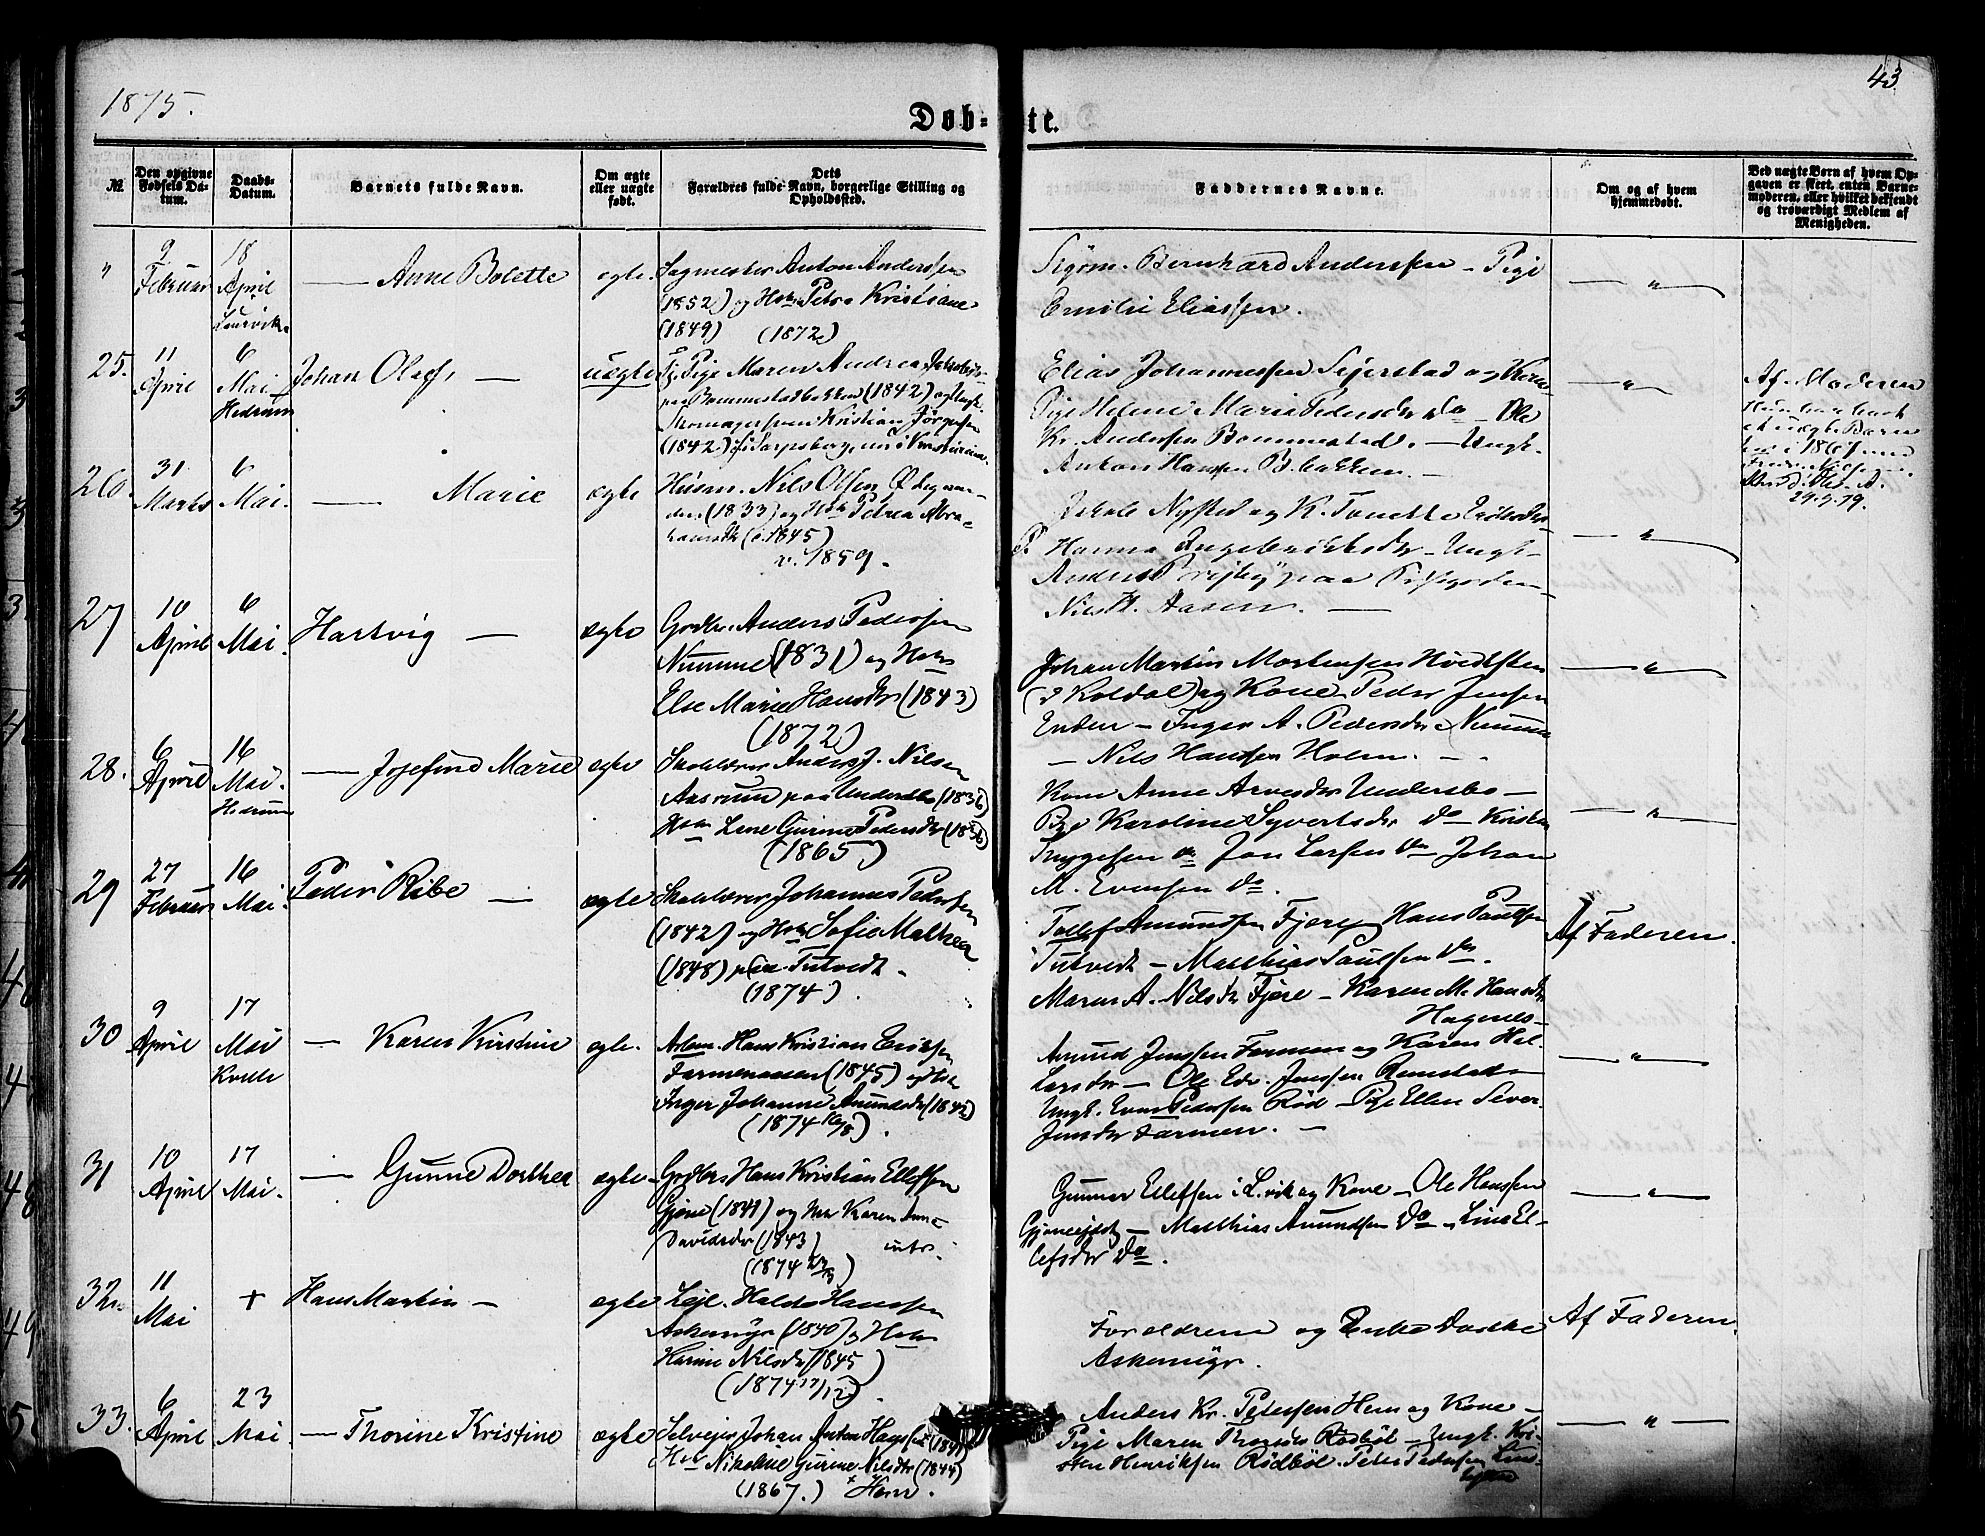 1875.
43
Døb-te.
№
Den opgivne
Fødsels Da-
tum.
Daabs-
Datum.
Barnets fulde Navn.
Om ægte
eller uægte
født.
Dets
Forældres fulde Navn, borgerlige Stilling og
Opholdssted.
Faddernes Navne.
Om og af hvem
hjemmedøbt.
Ved uægte Børn af hvem Op-
gaven er skeet, enten Barne-
moderen, eller hvilket bekjendt
og troværdigt Medlem af
Menigheden.
"
9
Februar
18
April
Laurvik
— Anne Bolette
ægte.
Sagmester Anton Anderssen
(1852) og Hstr Petra Kristiane
(1849) (1872)
Bernhard Anderssen - Pige
Emilie Eliassen.
— " —
25.
11
April
6
Mai
Hedrum
Johan Olaf, —
uægte
Pige Maren Andrea
paa Bommestadbakken (1842) og Ungk.
Skomagersvend Kristian Jörgensen
(1842) i Sarpsborg, nu i Kristiania.
Elias Johannessen Seierstad og Kone
Pige Helene Marie Pedersdtr Do - Ole
Kr. Andersen Bommestad. - Ungk.
Anton Hansen B.bakken. -
— " —
Af Moderen
26.
31
Marts
6
Mai.
— Marie
ægte
Husm. Nils Olsen Ødegaar-
den (1833) og Hstr Petrea Abra-
hamsdtr (c. 1845)
v. 1859.
Nysted og K. Tonette
P. Hanna Ingebrigtsdtr - Ungk.
Anders paa
Nils H. Aasen. —
— " —
27
10
April
6
Mai.
Hartvig —
ægte
Grdbr. Anders Pedersen
Numme (1831) og Hstr
Else Marie Hansdtr (1843)
(1872)
Johan Martin Mortensen
(? Koldal) og Kone. Peder Jensen
Enden - Inger A. Pedersdtr Numme
- Nils Hansen Holm. -
— " —
28.
6
April
16
Mai.
Hedrum
— Josefine Marie
ægte
Skolelærer Anders J. Nilsen
Aasrum paa Undersbo (1836)
Hstr Lene Gurine Pedersdtr (1836)
(1865)
Kone Anne Arvesdtr Undersbo -
Pige Karoline Syvertsdtr Do - Kristen
Trygesen do Jon Larsen Do Johan
M. Evensen Do.
— " —
29
27
Februar
16
Mai.
Peder Ribe —
ægte
Skolelærer Johannes Pedersen
(1842) og Hstr Sofie Mathea
(1848) paa Tutvedt.
(1874)
Tollef Amundsen Fjære, Hans Paulsen
Tutvedt - Matthias Paulsen Do.
Maren A. Nilsdtr Fjære - Karen M. Hansdtr
Hagenes-
Af Faderen.
30
9
April
17
Mai
Kvelle
— Karen Kirstine
ægte.
Arbm. Hans Kristian Eriksen
Farmenaasen (1845) og Hstr
Inger Johanne Amundsdtr (1842)
(1874 16/8).
Amund Jenssen Farmen og Karen Hel.
Larsdtr - Ole Edv. Jenssen Ramstad -
Ungk. Even Pedersen Rød - Pige Ellen Sever.
Jensdtr Farmen. -
— " —
31
10
April
17
Mai.
— Gunne Dorthea
ægte
Grdbr. Hans Kristian Ellefsen
Gjöne (1841) og Hstr Karen Anne
Davidsdtr (1843)
(1874 23/3)
Gunner Ellefsen i L.vik og Kone - Ole Hanssen
- Matthias Amundsen Do - Lina El-
lefsdtr Do.
— " —
32.
11
Mai
+
Hans Martin —
ægte
Lejl. Halds Hanssen
Askemyr (1840) og Hstr
Harine Nilsdtr (1845)
(1874 17/12).
Forældrene og Enke Dorthe
Askemyr.
Af Faderen.
33.
6
April
23
Mai.
— Thorine Kristine
ægte
Selveier Johan Anton Hansen (1841)
Hstr Nikoline Gurine Nilsdtr (1844)
(1867.) + Hem.
Anders Kr. Petersen Hem og Kone -
Pige Maren Rødbøl - Ungk. Kri-
sten Henriksen Rødbøl. Peter Pedersen
— " —